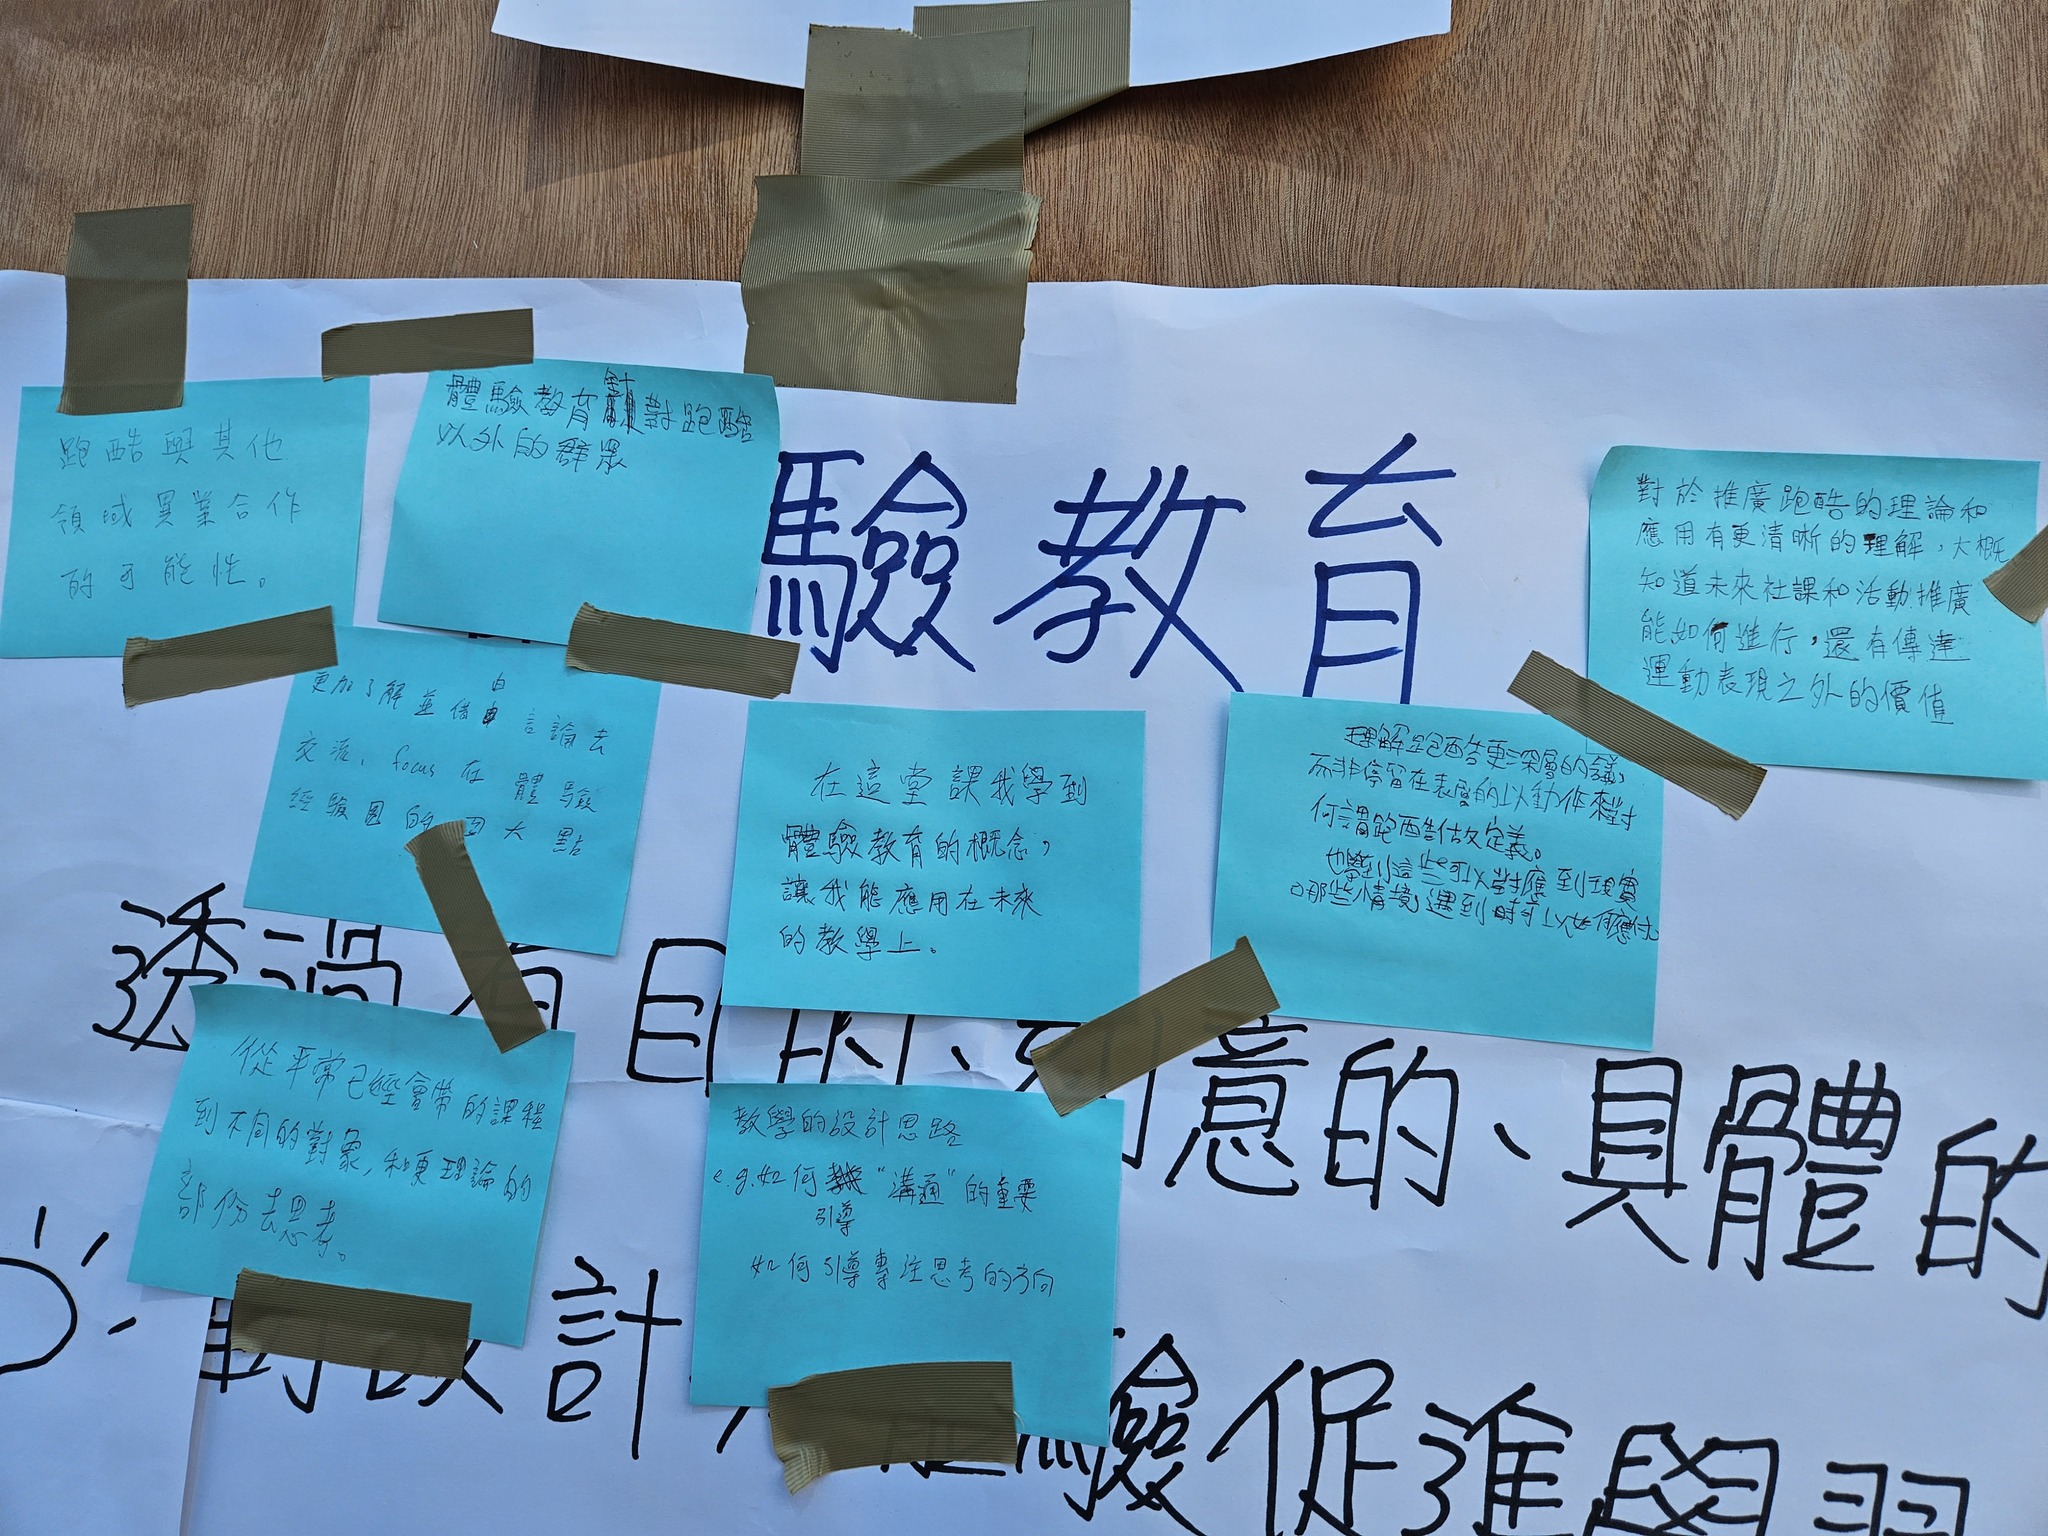 跑酷與其他
領域異業合作
的可能性。
體驗教育針對跑酷
以外的群眾
驗教育
對於推廣跑酷的理論和
應用有更清晰的理解,大概
知道未來社課和活動推廣
能如何進行,還有傳達
運動表現之外的價值
更加了解並借由言論去
交流, focus 在 體驗
經驗圈的四大點
在這堂課我學到
體驗教育的概念,
讓我能應用在未來
的教學上。
理解跑酷更深層的
而非停留在表層的以動作來對
何謂跑酷做定義。
也學到這些可以對應到現實
哪些情境遇到時可以如何應付
透過有目的、刻意的、具體的
從平常已經會帶的課程
到不同的對象,和更理論的
部份去思考。
教學的設計思路
e.g.如何引導"溝通"的重要
如何引導專注思考的方向
設計
驗促進學習